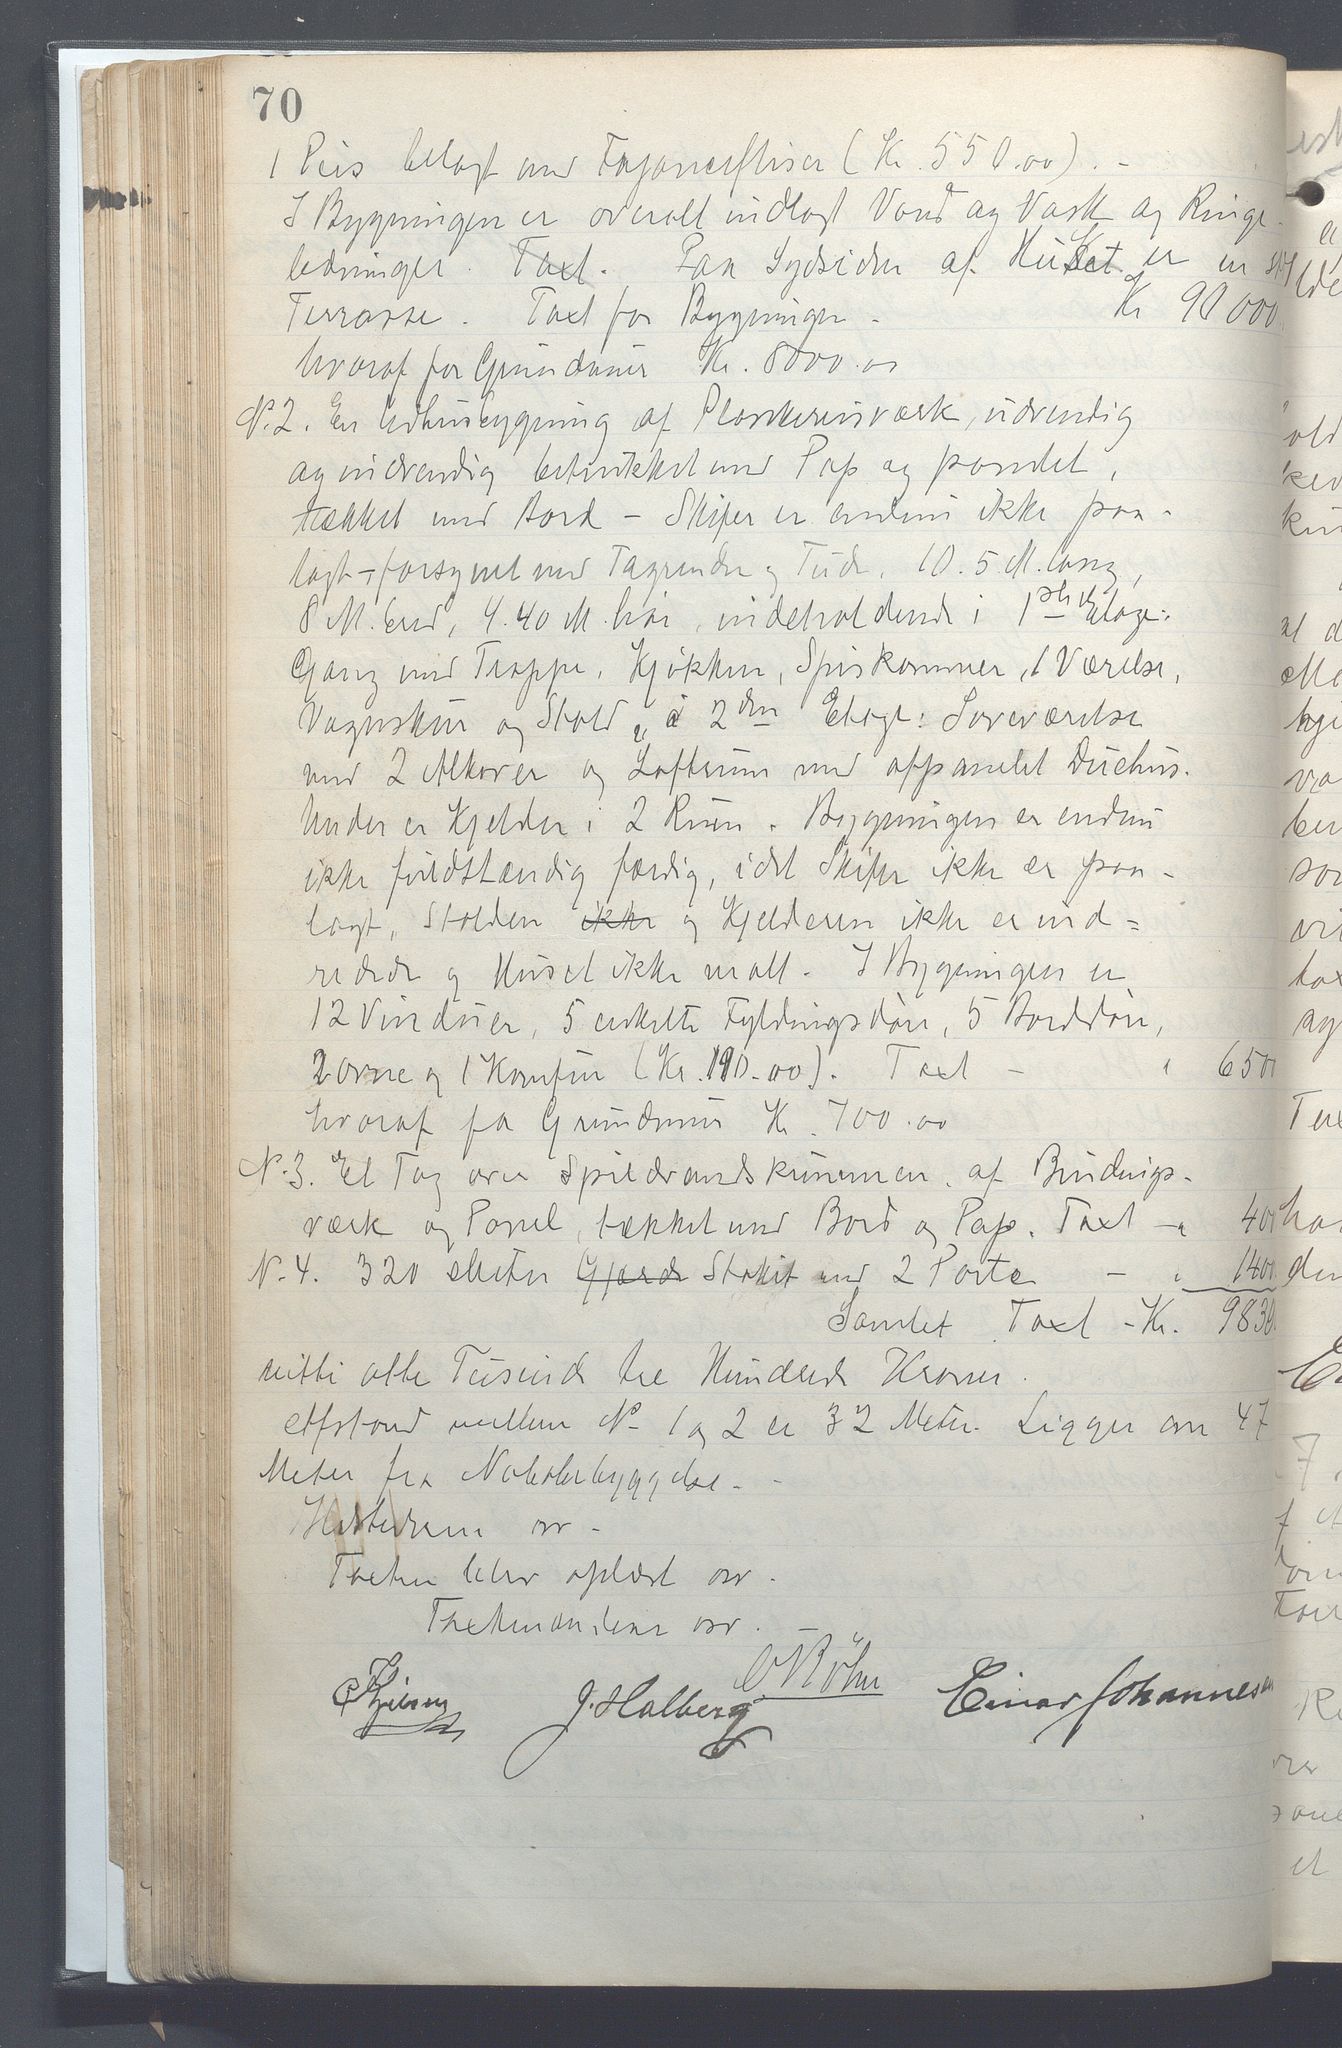 70
1 Peis belagt med Fajancefliser (Kr. 550.00). -
I Bygningen er overalt indlagt Vand og Vask og Ringe-
ledninger. Taxt. Paa Sydsiden af Huset er en
Terrasse. Taxt for Bygningen - Kr 90 000
hvoraf for Grundmur Kr. 8000.00
N. 2. En Udhusbygning af Plankereisværk, udvendig
og indvendig betrukket med Pap og panelet,
tækket med Bord - Skifer er endnu ikke paa-
lagt - forsynet med Tagrender og Tude. 10.5 M. lang,
8 M. bred, 4.40 M. høi, indeholdende i 1ste Etage:
Gang med Trappe, Kjøkken, Spiskammer, 1 Værelse,
Vognskur og Stald, i 2den Etage: Soveværelse
med 2 Alkover og Loftsrum med afpanelet Duehus.
Under er Kjelder i 2 Rum. Bygningen er endnu
ikke fuldstændig færdig, idet Skifer ikke er paa-
lagt, Stalden ikke og Kjelderen ikke er ind=
redede og Huset ikke malt. I Bygningen er
12 Vinduer, 5 enkelte Fyldingsdøre, 5 Borddøre,
2 Ovne og 1 Komfur (Kr. 190.00). Taxt - " 6500
hvoraf for Grundmur Kr. 700.00
N. 3. Et Tag over Spildvandskummen af Bindings-
værk og Panel, tækket med Bord og Pap. Taxt - " 400
N. 4. 320 Meter Gjerde Stakit med 2 Porte - " 1400
Samlet Taxt - Kr. 9830
nitti otte Tusinde tre Hundrede Kroner.
Afstand mellem N. 1 og 2 er 32 Meter. Ligger om 47
Meter fra Nabobebyggelse. -
Husleien osv -
Taxten blev oplæst osv.
Taxtmændene osv.
J. Halberg O Bøhn Einar Johannesen